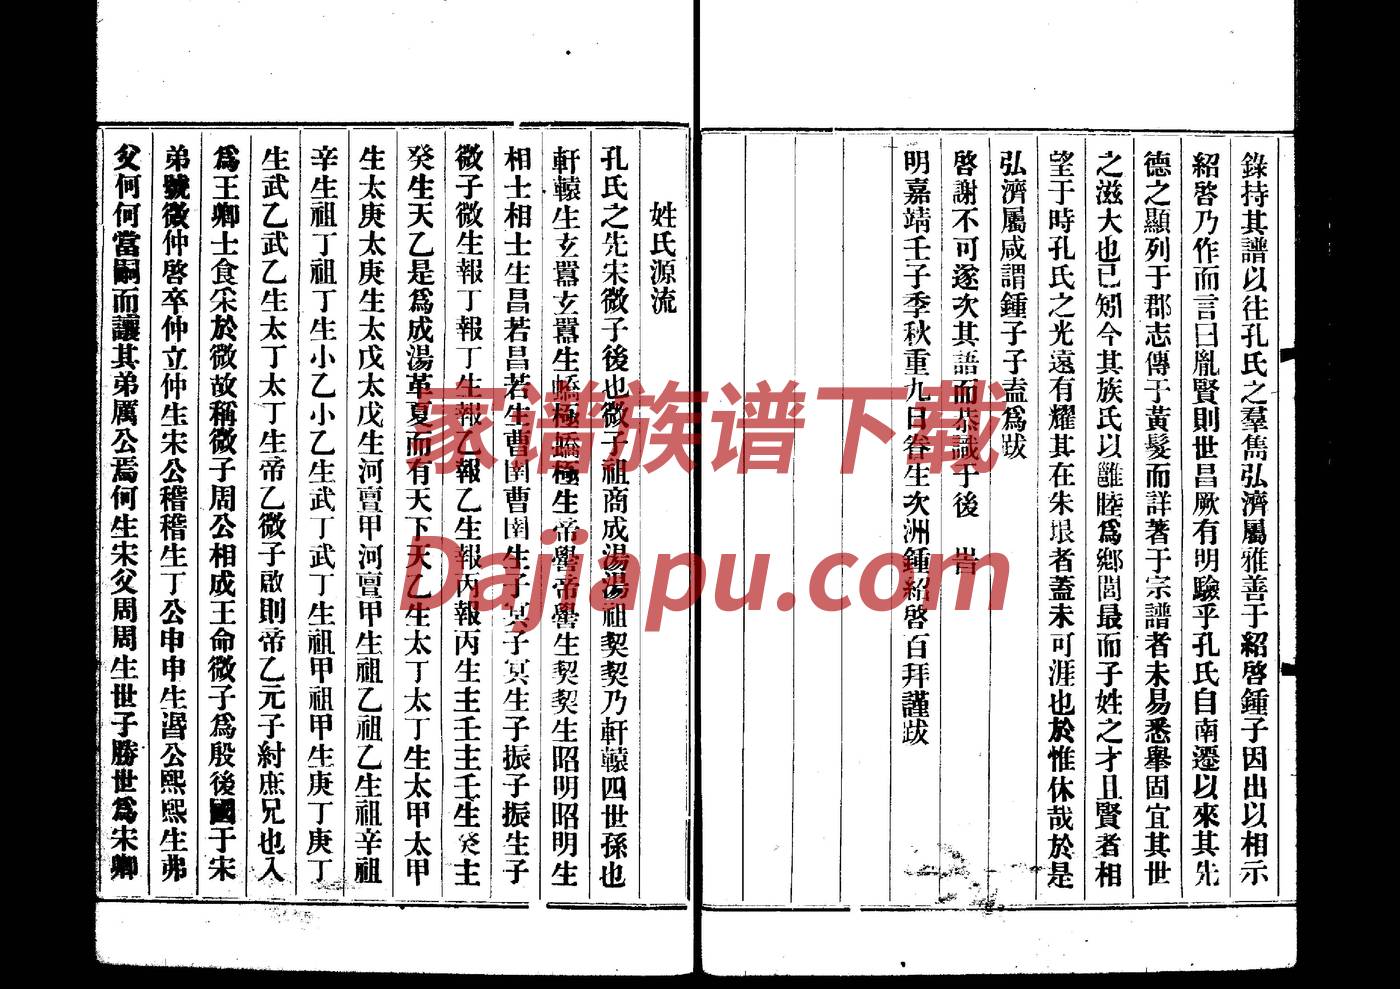 錄持其譜以往孔氏之羣雋弘濟屬雅善于紹啓鍾子因出以相示
紹啓乃作而言曰胤賢則世昌厥有明驗乎孔氏自南遷以來其先
德之顯列于郡志傳于黃髮而詳著于宗譜者未易悉舉固宜其世
之滋大也已矧今其族氏以雝睦爲鄉閭最而子姓之才且賢者相
望于時孔氏之光遠有耀其在朱垠者蓋未可涯也於惟休哉於是
弘濟屬咸謂鍾子子盍爲跋
啓謝不可遂次其語而恭識于後 旹
明嘉靖壬子季秋重九日眷生次洲鍾紹啓百拜謹跋
姓氏源流
孔氏之先宋微子後也微子祖商成湯湯祖契契乃軒轅四世孫也
軒轅生玄囂玄囂生蟜極蟜極生帝嚳帝嚳生契契生昭明昭明生
相士相士生昌若昌若生曹圉曹圉生子冥子冥生子振子振生子
微子微生報丁報丁生報乙報乙生報丙報丙生主壬主壬生癸主
癸生天乙是爲成湯革夏而有天下天乙生太丁太丁生太甲太甲
生太庚太庚生太戊太戊生河亶甲河亶甲生祖乙祖乙生祖辛祖
辛生祖丁祖丁生小乙小乙生武丁武丁生祖甲祖甲生庚丁庚丁
生武乙武乙生太丁太丁生帝乙微子啟則帝乙元子紂庶兄也入
爲王卿士食宋於微故稱微子周公相成王命微子爲殷後國于宋
弟號微仲啓卒仲立仲生宋公稽稽生丁公申申生湣公熙熙生弗
父何何當嗣而讓其弟厲公焉何生宋父周周生世子勝世爲宋卿
家谱族谱下载
Dajiapu.com